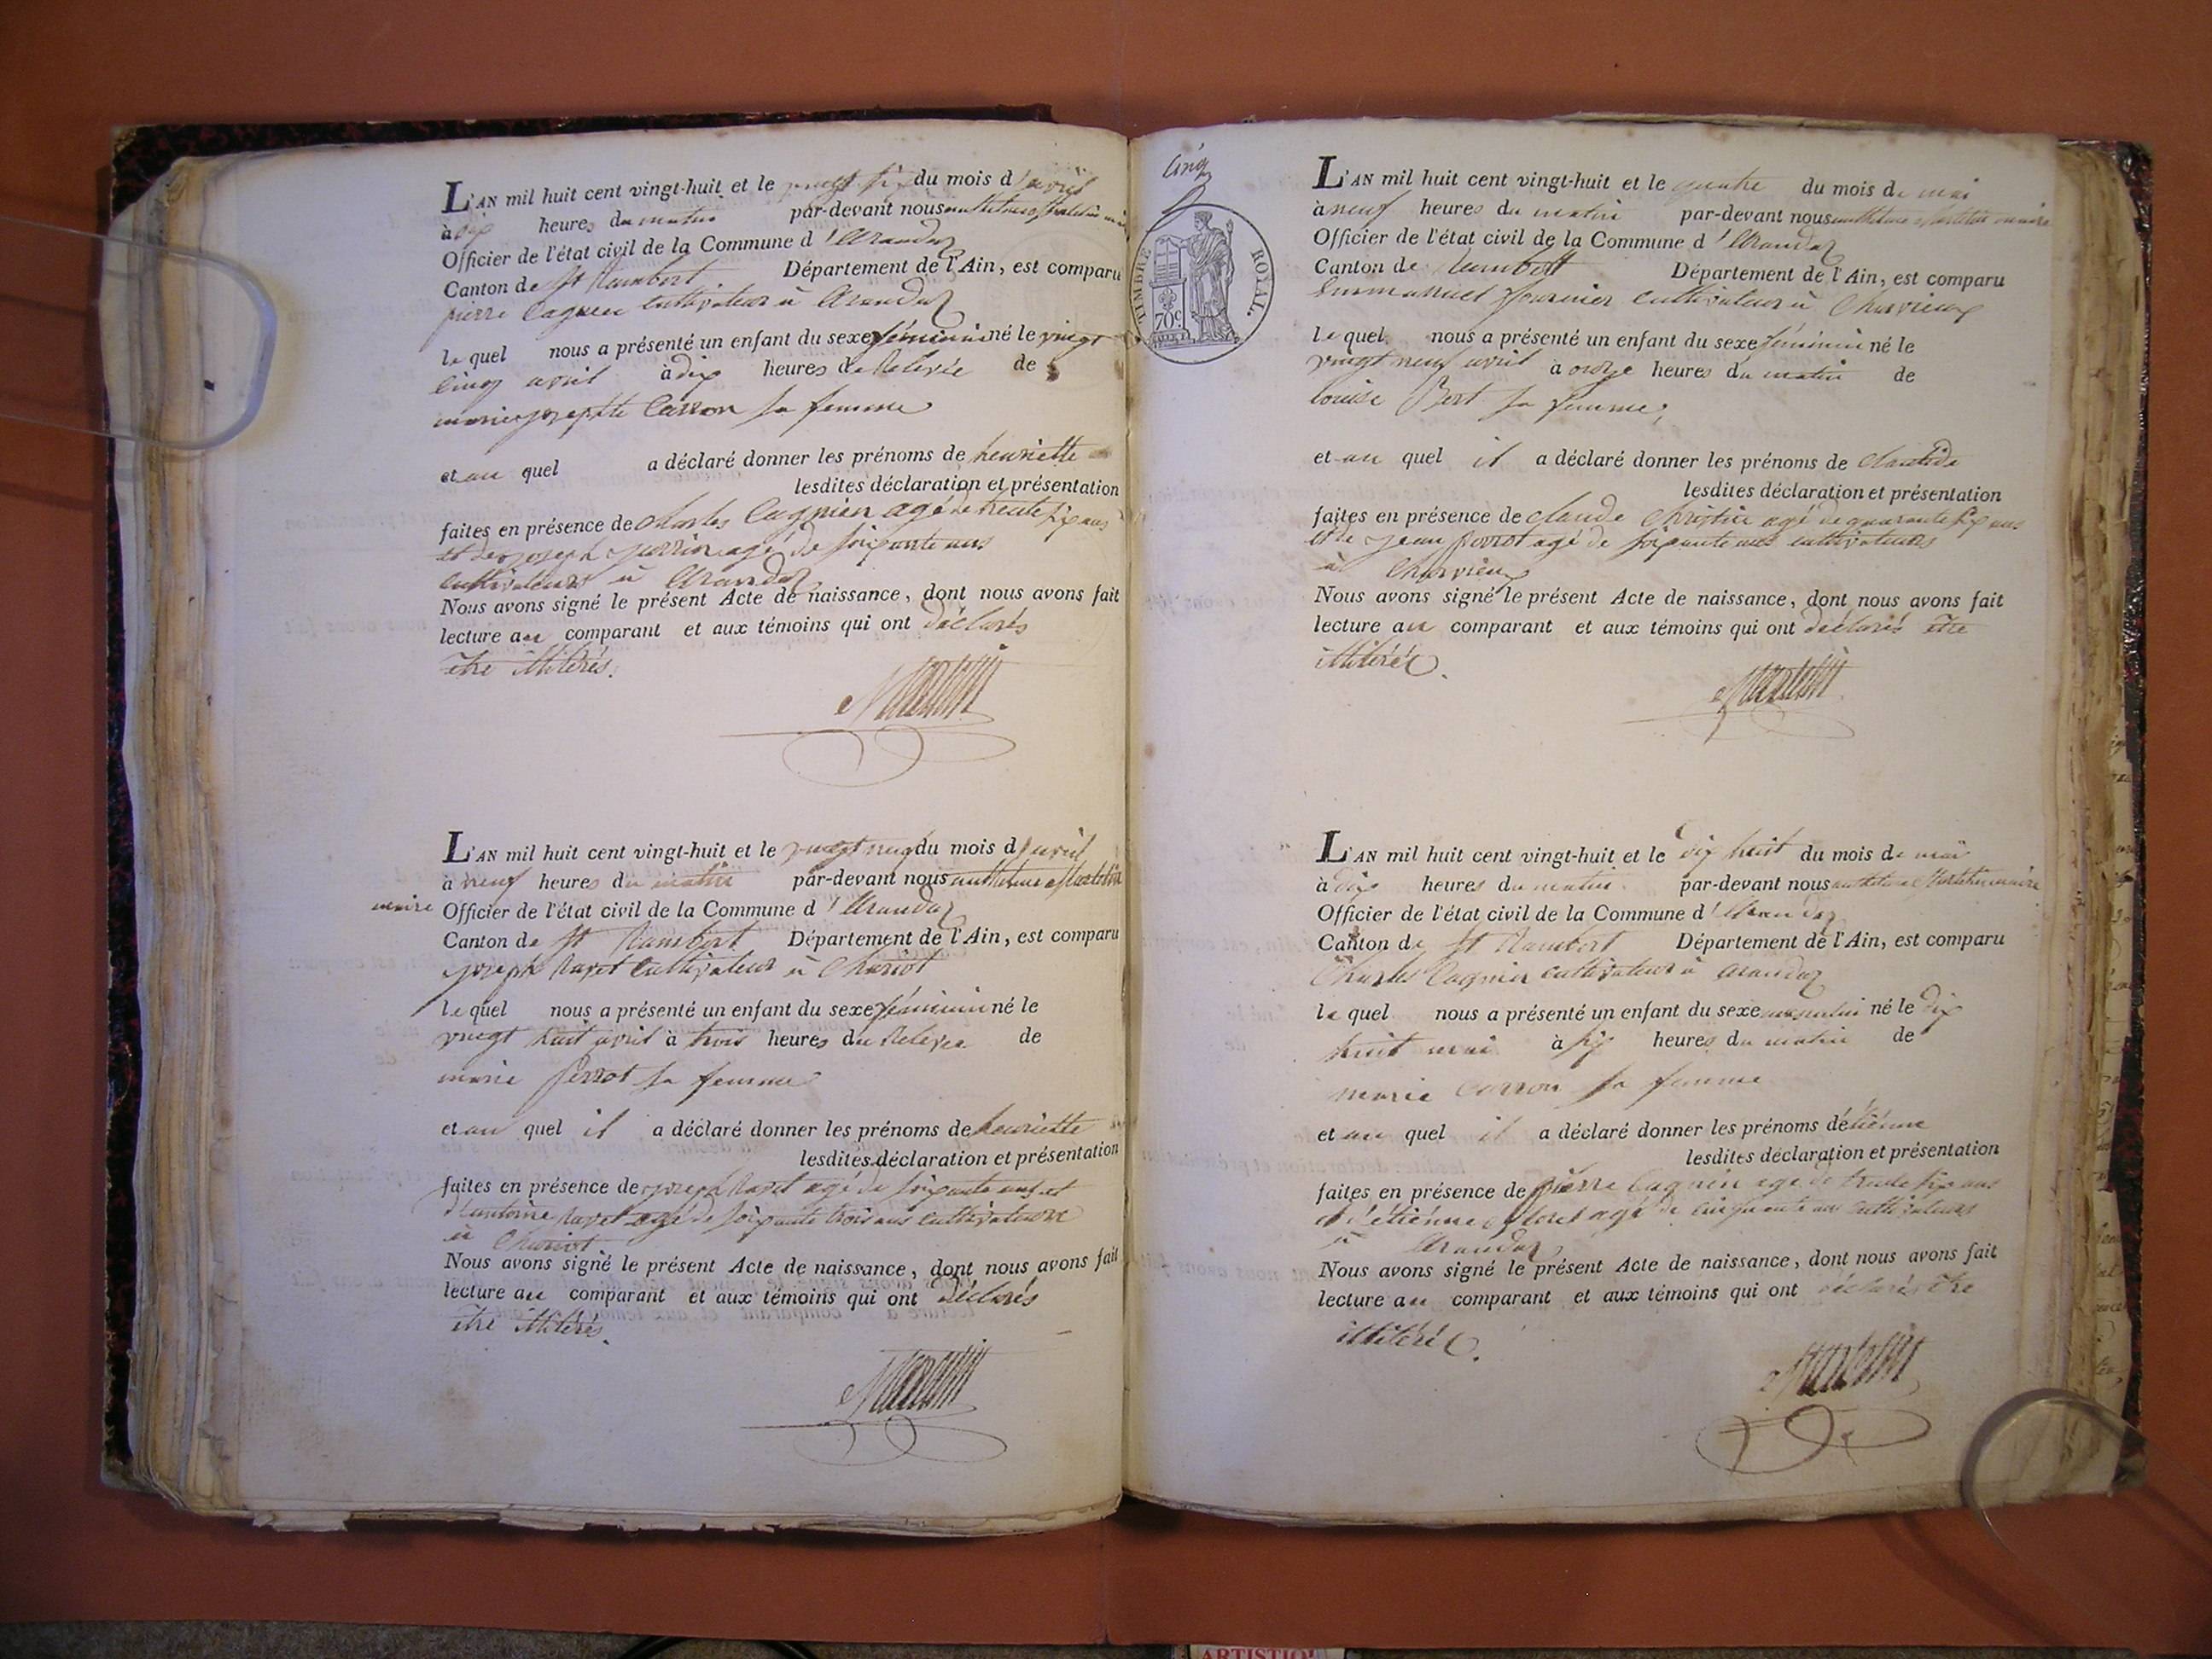 L'AN mil huit cent vingt-huit et le vingt six du mois d'avril
à dix heures du matin par-devant nous
Officier de l'état civil de la Commune d'Arandaz
Canton de St Rambert Département de l'Ain, est comparu
pierre Cagnin cultivateur à Arandaz
lequel nous a présenté un enfant du sexe féminin né le vingt
cinq avril à dix heures de Relevée de
marie josephte Carron sa femme
et au quel a déclaré donner les prénoms de henriette
lesdites déclaration et présentation
faites en présence de charles Cagnien agé de trente six ans
et de joseph perrin agé de soixante ans
cultivateurs à Arandaz
Nous avons signé le présent Acte de naissance, dont nous avons fait
lecture au comparant et aux témoins qui ont déclarés
être illitérés.
Martelin
L'AN mil huit cent vingt-huit et le vingt neuf du mois d'avril
à neuf heures du matin par-devant nous anthelme Martelin
maire Officier de l'état civil de la Commune d'Arandaz
Canton de St Rambert Département de l'Ain, est comparu
joseph Ravet cultivateur à Charriot
lequel nous a présenté un enfant du sexe féminin né le
vingt huit avril à trois heures du Relevée de
marie perrot sa femme
et au quel il a déclaré donner les prénoms de henriette
lesdites déclaration et présentation
faites en présence de joseph Ravet agé de soixante ans et
d'antoine Ravet agé de soixante trois ans cultivateurs
à Charriot
Nous avons signé le présent Acte de naissance, dont nous avons fait
lecture au comparant et aux témoins qui ont déclarés
être illitérés.
Martelin
cinq
TIMBRE ROYAL.
70c
L'AN mil huit cent vingt-huit et le quatre du mois de mai
à neuf heures du matin par-devant nous anthelme Martelin maire
Officier de l'état civil de la Commune d'Arandaz
Canton de Rambert Département de l'Ain, est comparu
Emmanuel fournier cultivateur à Charvieux
lequel nous a présenté un enfant du sexe féminin né le
vingt neuf avril à onze heures du matin de
louise Bert sa femme,
et au quel il a déclaré donner les prénoms de
lesdites déclaration et présentation
faites en présence de claude Christin agé de quarante six ans
et de jean perrot agé de soixante ans cultivateurs
à Charvieux
Nous avons signé le présent Acte de naissance, dont nous avons fait
lecture au comparant et aux témoins qui ont déclarés être
illitérés.
Martelin
L'AN mil huit cent vingt-huit et le dix huit du mois de mai
à dix heures du matin par-devant nous anthelme Martelin maire
Officier de l'état civil de la Commune d'Arandaz
Canton de St Rambert Département de l'Ain, est comparu
Charles Cagnin cultivateur à arandaz
lequel nous a présenté un enfant du sexe masculin né le dix
huit mai à six heures du matin de
marie Carron sa femme
et au quel il a déclaré donner les prénoms d'étiénne
lesdites déclaration et présentation
faites en présence de pierre Cagnin agé de trente six ans
et d'étiénne agé de cinquante ans cultivateurs
à Arandaz
Nous avons signé le présent Acte de naissance, dont nous avons fait
lecture au comparant et aux témoins qui ont déclarés être
illitérés.
Martelin